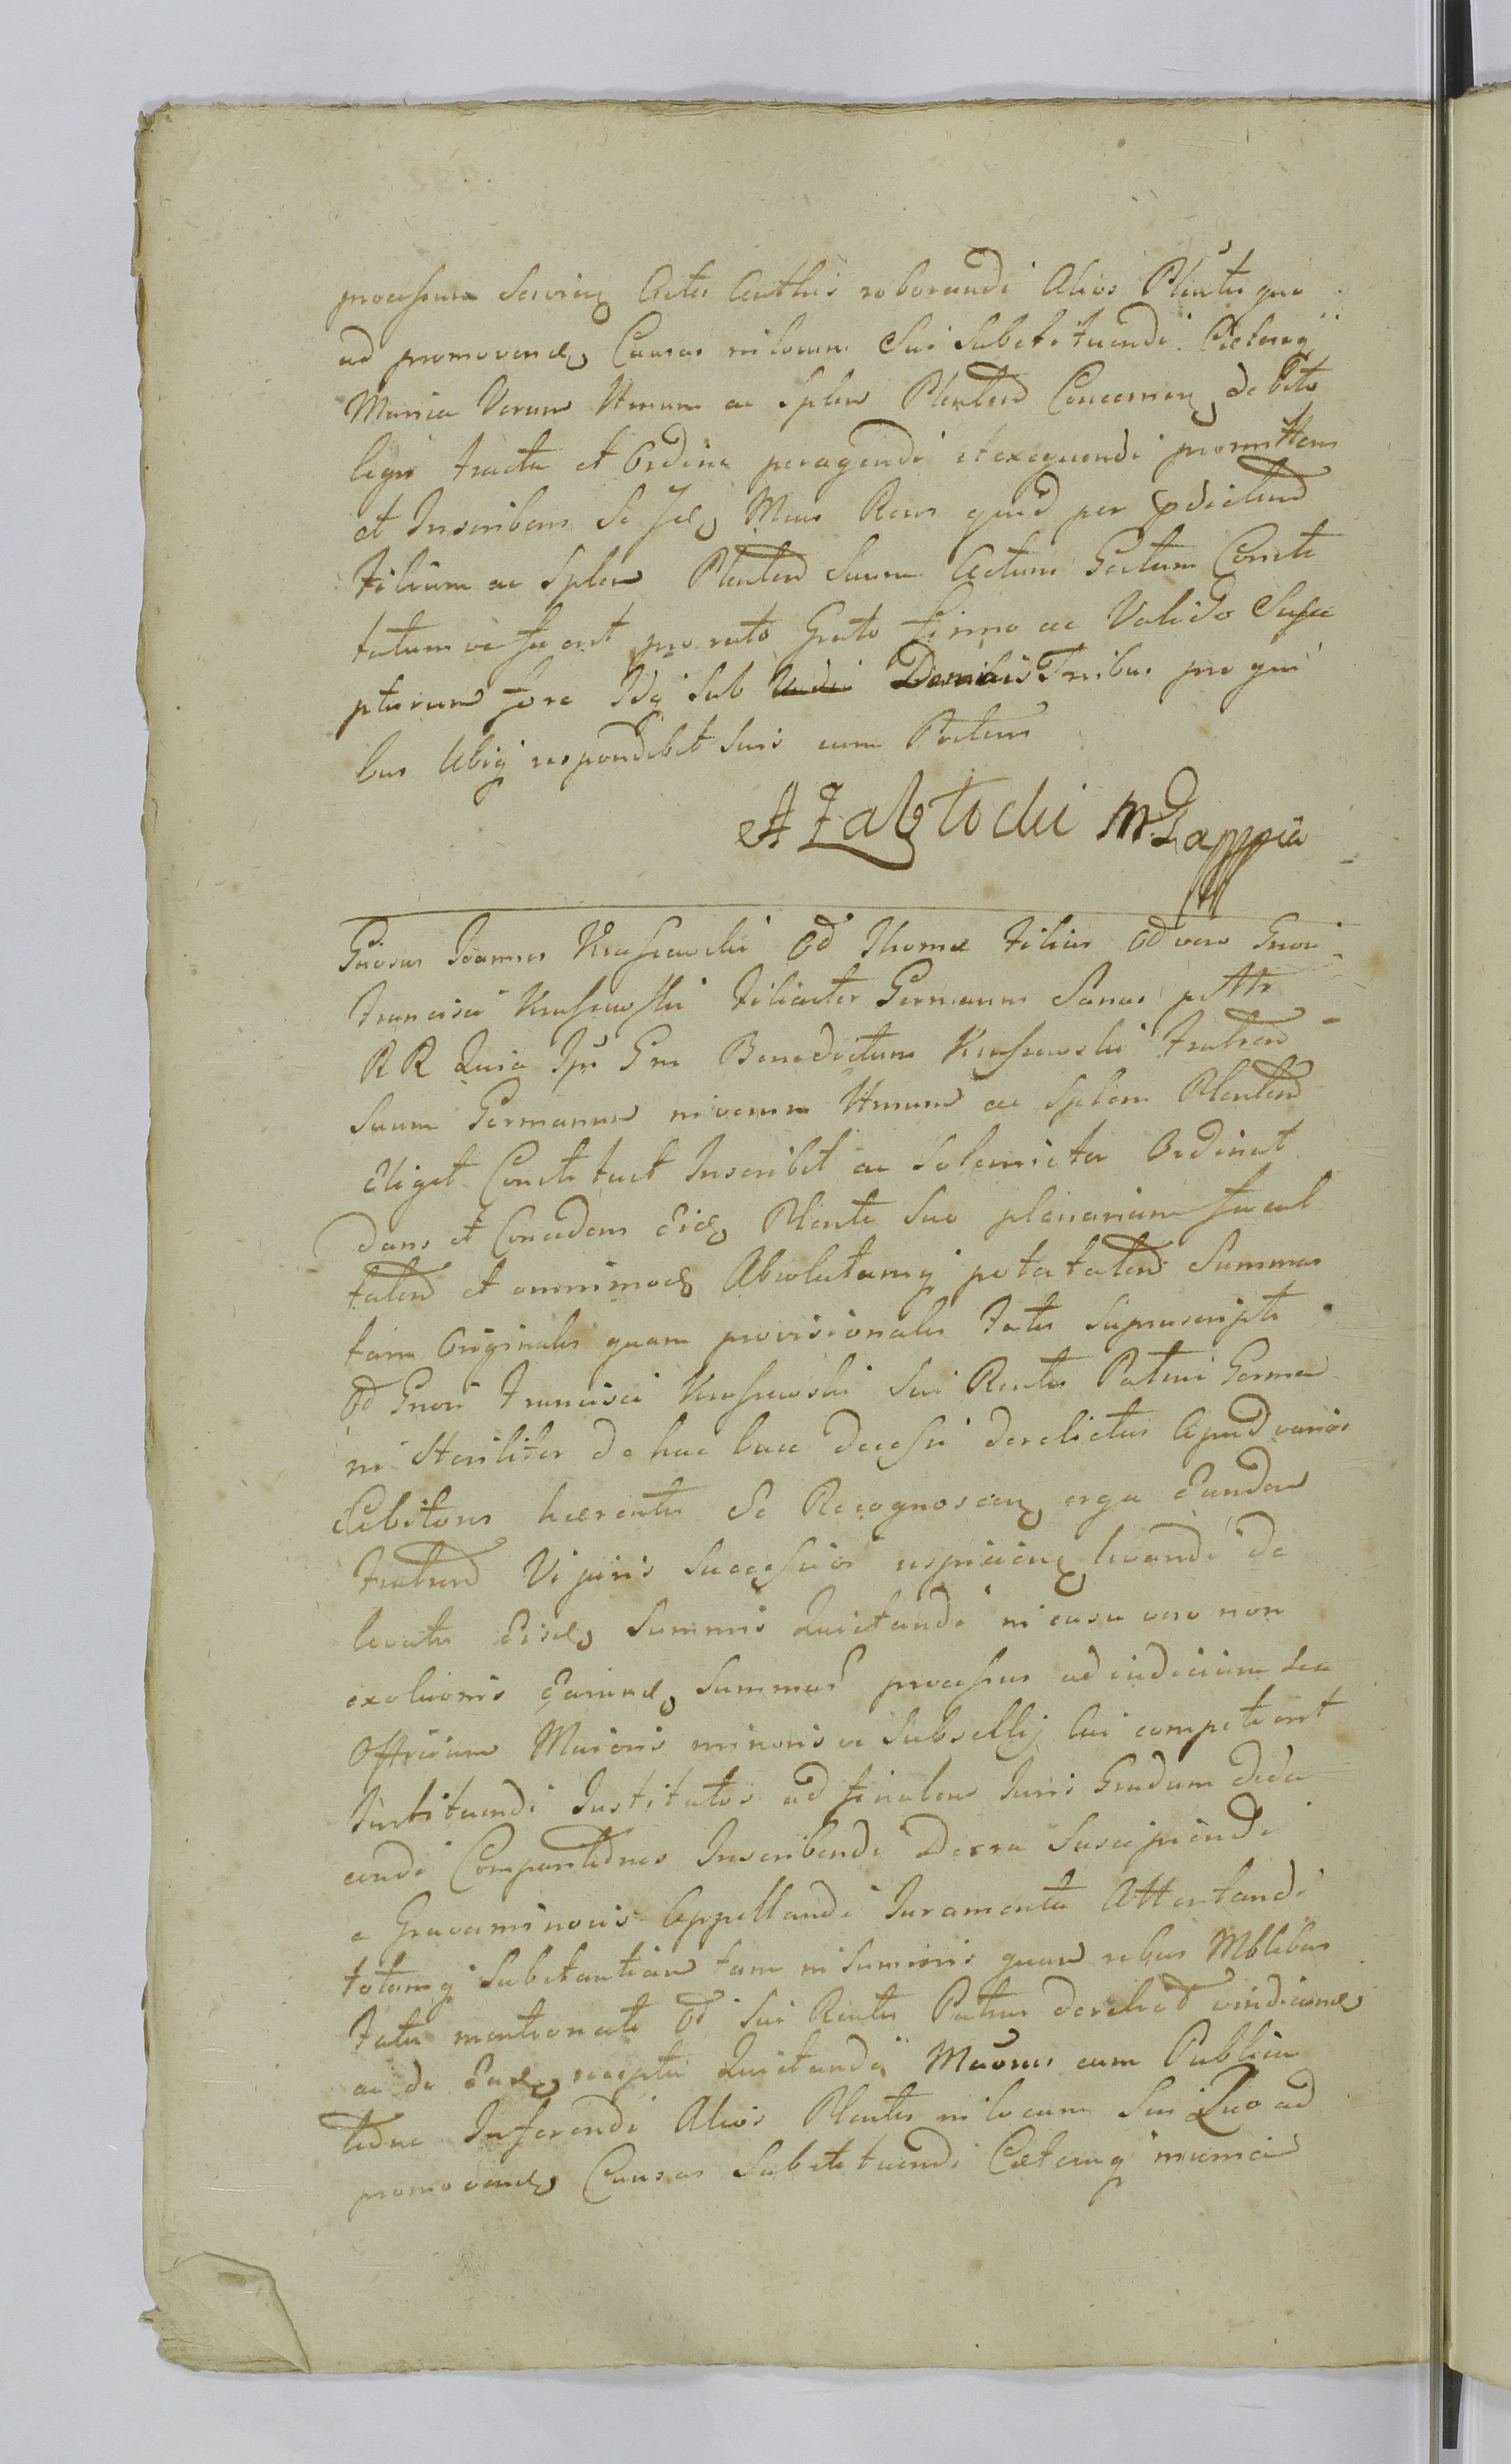 processum Serving Actis Authcis roborandi Alios Plentes quo
ad promovend Causas in locum Sui Substituendi Ceteraq
Munia Verum Hnum ac Splem Plentem Concernen debito
legis tractu et Ordine peragendi et exequendi promittens
et Inscribens Se Id Mcus Rcns quid per pdictum
Filium ac Splem Plentem Suum Actum Gestum Consti
tutum ve fuerit pro rato Grato firmo ac Valido Susce
pturum fore Idq Sub Damnis Tribus pro qui
bus Ubiq respondebit Suis cum Pctum
A Zabłocki mppia
Gnosus Joannes Kraszewski Od Thomæ Filius Od vero Gnosi
Francisci Kraszewski Germanus Sanus
RR Quia Ips Gm Benedictum Kraszewski Fratrem
Suum Germanum in verum Hnum ac Splem Plentem
eligit Constituit Inscribit ac Solemniter Ordinat
dans et Concedens Eid Plenti Suo plenariam facul
tatem et omnimod Absolutamq potestatem Summas
tam Originales quam provisionales Fatis Suprascripti
Od Gnosi Francisci Kraszewski Sui Rcntis Patrui Germa
ni Steriliter de hac luce decessi derelictas Apud varios
Debitores hærentes Se Recognoscen erga Eundem
Fratrem Vi juris Successivi respicien levandi de
levatis Eisd Summis Quietandi in casu vero non
exolucionis Earund Summar processus ad iudicium seu
Officium Maioris minoris ve Subsellij cui competierit
Instituendi Institutos ad finalem Juris Gradum dedu
cendi Comparitiones Inscribendi Decrta Suscipiendi
a Gravaminosis Appellandi Juramenta Attentandi
totamq Substantiam tam in Sumis quam rebus Mblibus
Fatis mentionati Od Sui Rcntis Patrui derelict vindicand
ac de Ead recepta Quietandi cum Publica
tione Inferendi Alios Plentes in locum Sui Quo ad
promovend Causas Substituendi Cæteraq munia